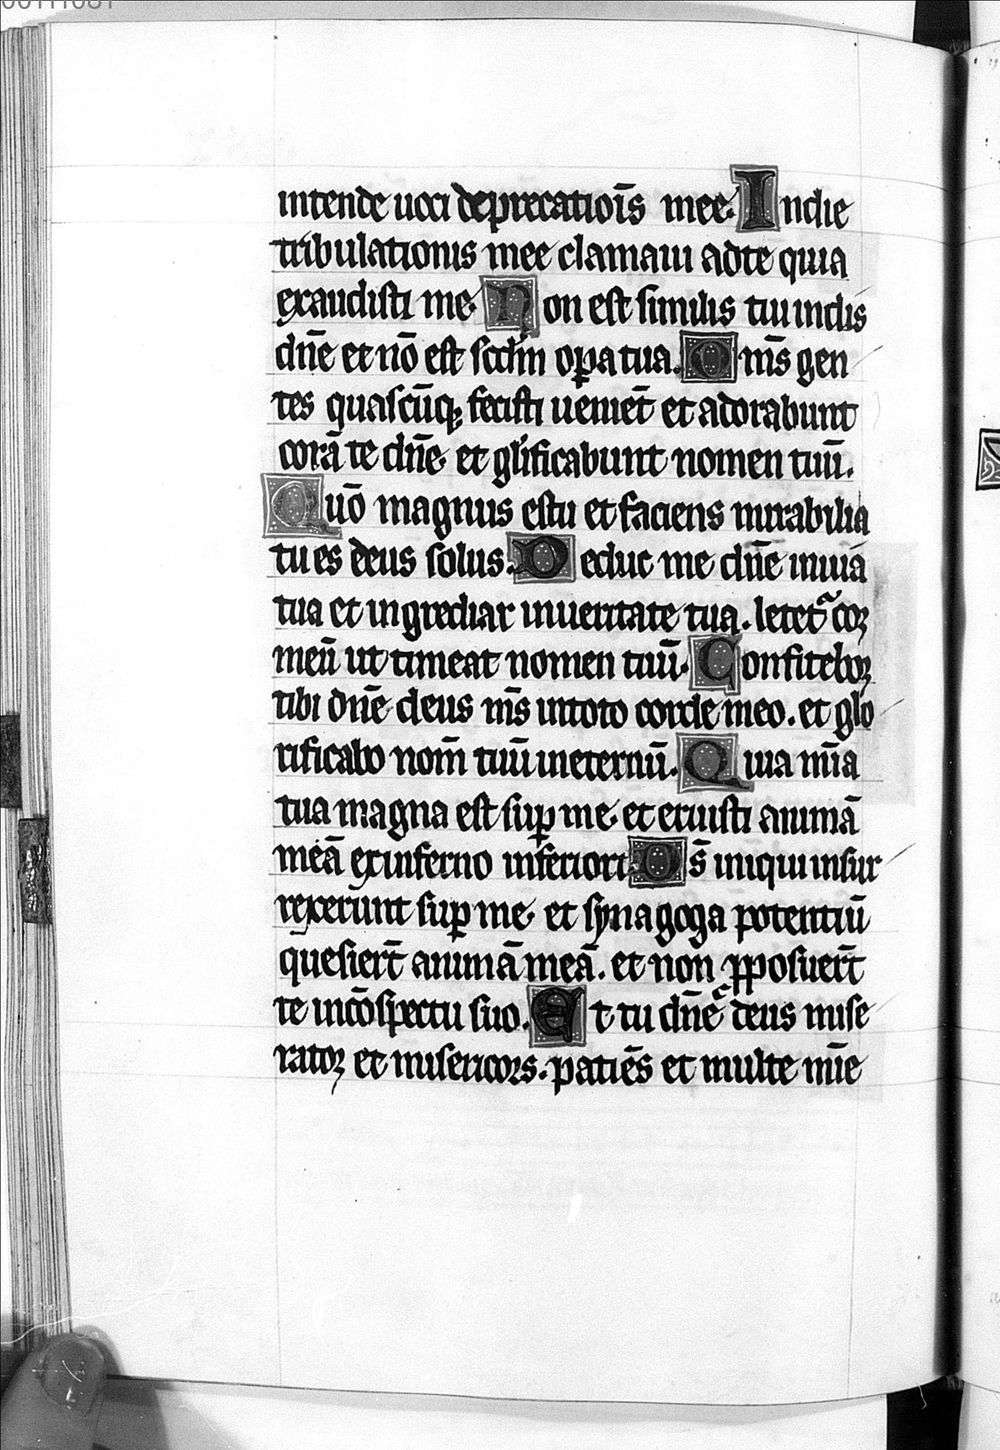 intende uoci deprecatiōis mee. Indie
tribulationis mee clamaui adte quia
exaudisti me. Non est similis tui indiis
dn̄e et nō est scdm̄ oꝑa tua. Om̄s gen
tes quascūq; fecisti ueniēt et adorabunt
corā te dn̄e. et gl̄ificabunt nomen tuū.
Quō magnus es tu et faciens mirabilia
tu es deus solus. Deduc me dn̄e in uia
tua et ingrediar in ueritate tua. letetᷣ coꝛ
meū ut timeat nomen tuū. Confiteboꝛ
tibi dn̄e deus m̄s in toto corde meo. et glo
rificabo nom̄ tuū in eternū. Quia mīa
tua magna est suꝑ me. et eruisti animā
meā ex inferno inferiori. Ds̄ iniqui insur
rexerunt suꝑ me. et synagoga potentiū
quesierт̄ animā meā. et non ꝓposuerт̄
te incōspectu suo. Et tu dn̄e deus mise
ratoꝛ et misericors. patiēs et multe mīe